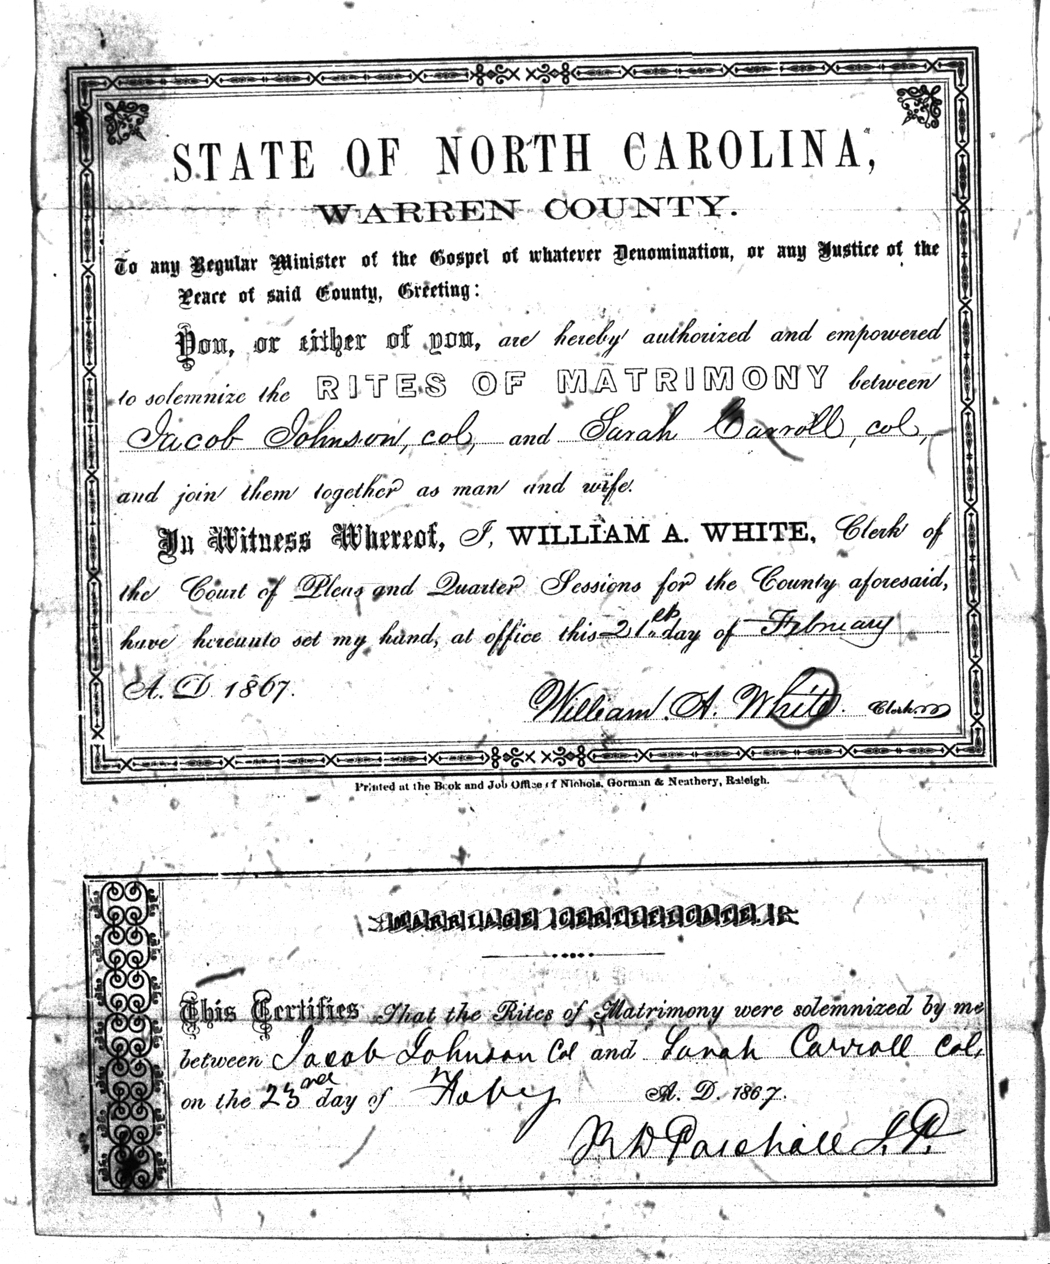 STATE OF NORTH CAROLINA,
WARREN COUNTY.
To any Regular Minister of the Gospel of whatever Denomination, or any Justice of the
Peace of said County, Greeting:
You, or either of you, are hereby authorized and empowered
to solemnize the RITES OF MATRIMONY between
Jacob Johnson, col, and Sarah Carroll, col,
and join them together as man and wife.
In Witness Whereof, I, WILLIAM A. WHITE, Clerk of
the Court of Pleas and Quarter Sessions for the County aforesaid,
have hereunto set my hand, at office this 21st day of February
A. D. 1867.
William A. White. Clerk.
Printed at the Book and Job Office of Nichols, Gorman & Neathery, Raleigh.
MARRIAGE CERTIFICATE.
This Certifies That the Rites of Matrimony were solemnized by me
between Jacob Johnson Col and Sarah Carroll Col,
on the 23rd day of Feby A. D. 1867.
R D Paschall J. P.